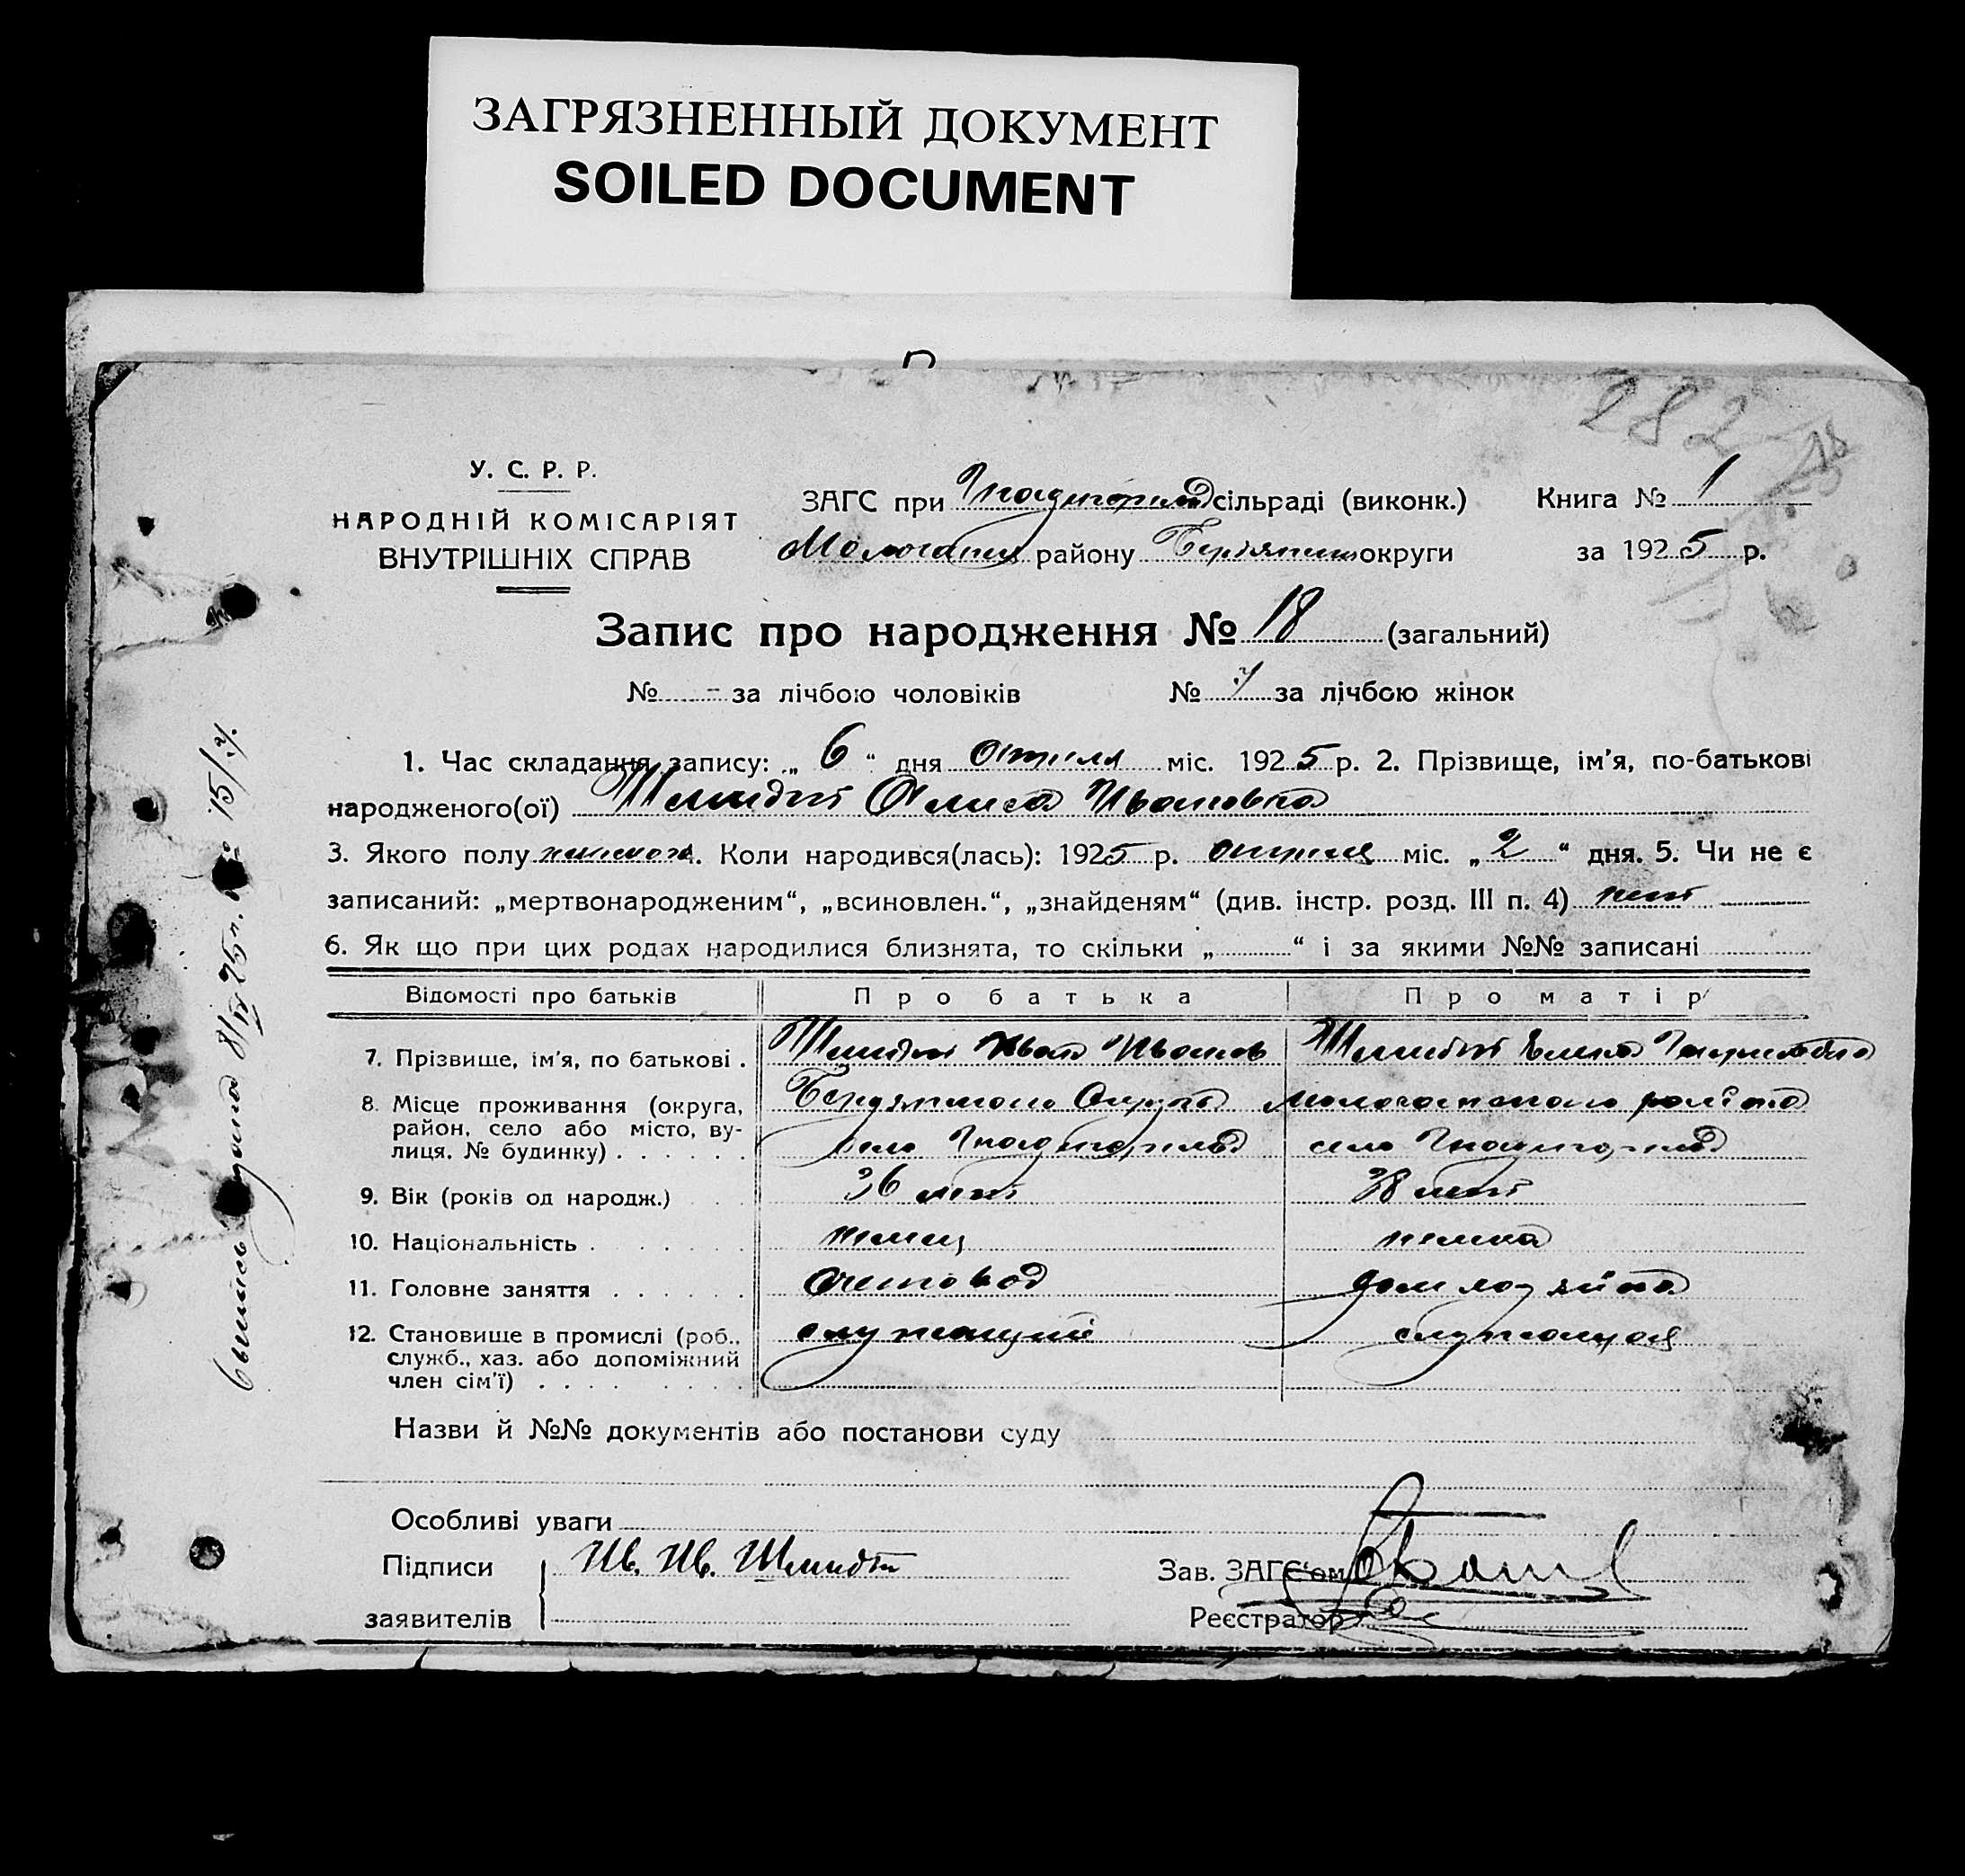 ЗАГРЯЗНЕННЫЙ ДОКУМЕНТ
SOILED DOCUMENT
282
У. С. Р. Р.
НАРОДНІЙ КОМІСАРІЯТ
ВНУТРІШНІХ СПРАВ
ЗАГС при сільраді (виконк.) Книга № 1
району округи за 1925 р.
Запис про народження № 18 (загальний)
№ - за лічбою чоловіків № за лічбою жінок
1. Час складання запису: „ 6 “ дня апреля міс. 1925 р. 2. Прізвище, ім’я, по-батькові
народженого(ої) Шмидт Алиса Ивановна
3. Якого полу женского 4. Коли народився(лась): 1925 р. апреля міс. „ 2 “ дня. 5. Чи не є
записаний: „мертвонародженим“, „всиновлен.“, „знайденям“ (див. інстр. розд. III п. 4) нет
6. Як що при цих родах народилися близнята, то скільки „ “ і за якими №№ записані
Відомості про батьків Про батька Про матір
7. Прізвище, ім’я, по батькові . Шмидт Иван Иванов Шмидт Елена
8. Місце проживання (округа, Бердянского Округа Молочанского района
район, село або місто, ву-
лиця, № будинку) . . . . . . село село
9. Вік (років од народж.) 36 лет 38 лет
10. Національність . . . . . . немец немка
11. Головне заняття . . . . . . счетовод домхозяйка
12. Становище в промислі (роб., служащий служащая
служб., хаз. або допоміжний
член сім’ї) . . . .
Назви й №№ документів або постанови суду
Особливі уваги
Підписи Ив. Ив. Шмидт Зав. ЗАГС’ом
заявителів Реєстратор